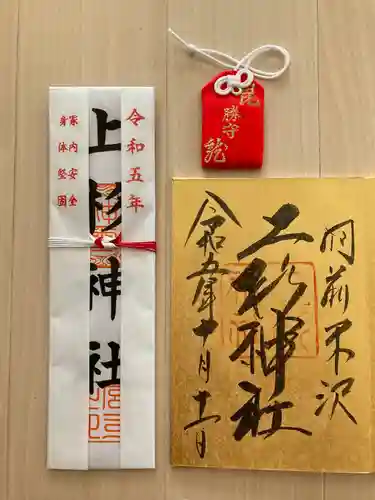 令和五年
上杉神社
家内安全
身体堅固
毘
勝守
龍
羽前米沢
上杉神社
令和五年十月十一日